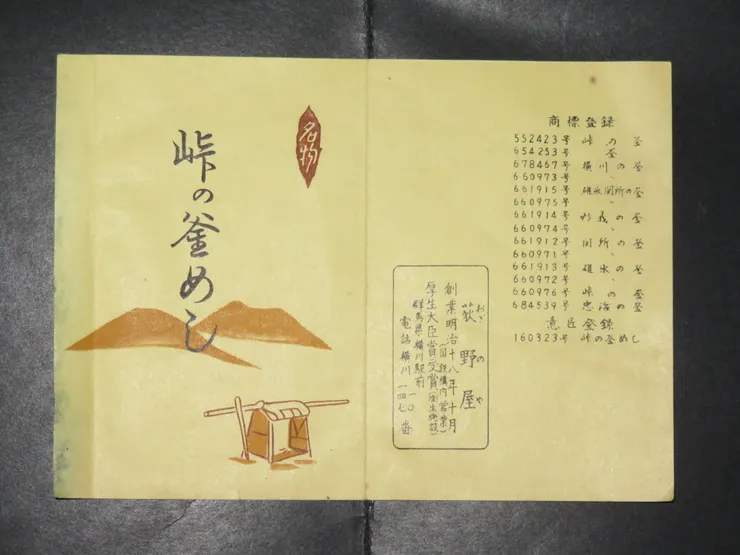 名物
峠の釜めし
商標登録
552423号 峠の釜
654253号 釜
678467号 横川の釜
660973号 〃
661915号 碓氷関所の釜
660975号 〃
661914号 妙義の釜
660974号 〃
661912号 関所の釜
660971号 〃
661913号 碓氷の釜
660972号 〃
660976号 峠の釜
684539号 忠治の釜
意匠登録
160323号 峠の釜めし
おぎのや
荻野屋
創業明治十八年十月
(国鉄構内営業)
厚生大臣賞受賞(衛生施設)
群馬県横川駅前
電話横川 一〇 一四七 番